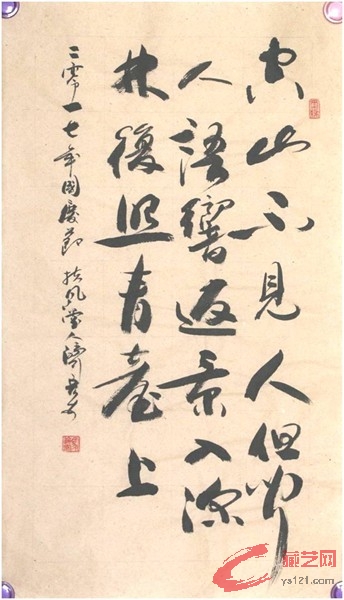 空山不見人但聞
人語響返景入深
林復照青臺上
二零一七年國慶節 扶風
藏艺网
ys121.com